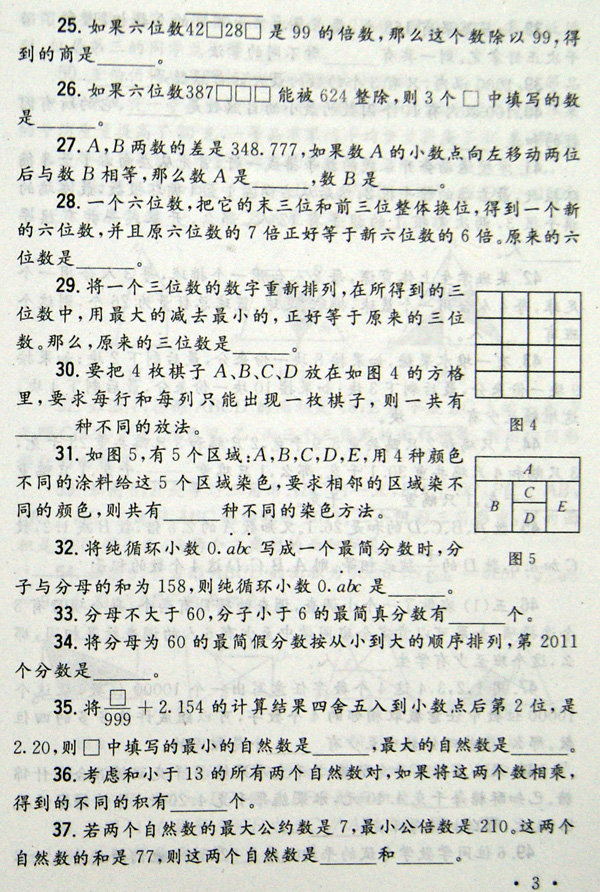 25. 如果六位数42□28□ 是 99 的倍数,那么这个数除以 99,得
到的商是______。
26. 如果六位数387□□□ 能被 624 整除,则 3 个 □ 中填写的数
是______。
27. A,B 两数的差是 348.777,如果数 A 的小数点向左移动两位
后与数 B 相等,那么数 A 是______,数 B 是______。
28. 一个六位数,把它的末三位和前三位整体换位,得到一个新
的六位数,并且原六位数的 7 倍正好等于新六位数的 6 倍。原来的六
位数是______。
29. 将一个三位数的数字重新排列,在所得到的三
位数中,用最大的减去最小的,正好等于原来的三位
数。那么,原来的三位数是______。
30. 要把 4 枚棋子 A、B、C、D 放在如图 4 的方格
里,要求每行和每列只能出现一枚棋子,则一共有
______种不同的放法。
图 4
31. 如图 5,有 5 个区域:A,B,C,D,E,用 4 种颜色
不同的涂料给这 5 个区域染色,要求相邻的区域染不
同的颜色,则共有______种不同的染色方法。
A
B
C
D
E
图 5
32. 将纯循环小数 0.ȧbċ 写成一个最简分数时,分
子与分母的和为 158,则纯循环小数 0.ȧbċ 是______。
33. 分母不大于 60,分子小于 6 的最简真分数有______个。
34. 将分母为 60 的最简假分数按从小到大的顺序排列,第 2011
个分数是______。
35. 将□/999 + 2.154 的计算结果四舍五入到小数点后第 2 位,是
2.20,则 □ 中填写的最小的自然数是______,最大的自然数是______。
36. 考虑和小于 13 的所有两个自然数对,如果将这两个数相乘,
得到的不同的积有______个。
37. 若两个自然数的最大公约数是 7,最小公倍数是 210。这两个
自然数的和是 77,则这两个自然数是______和______。
· 3 ·